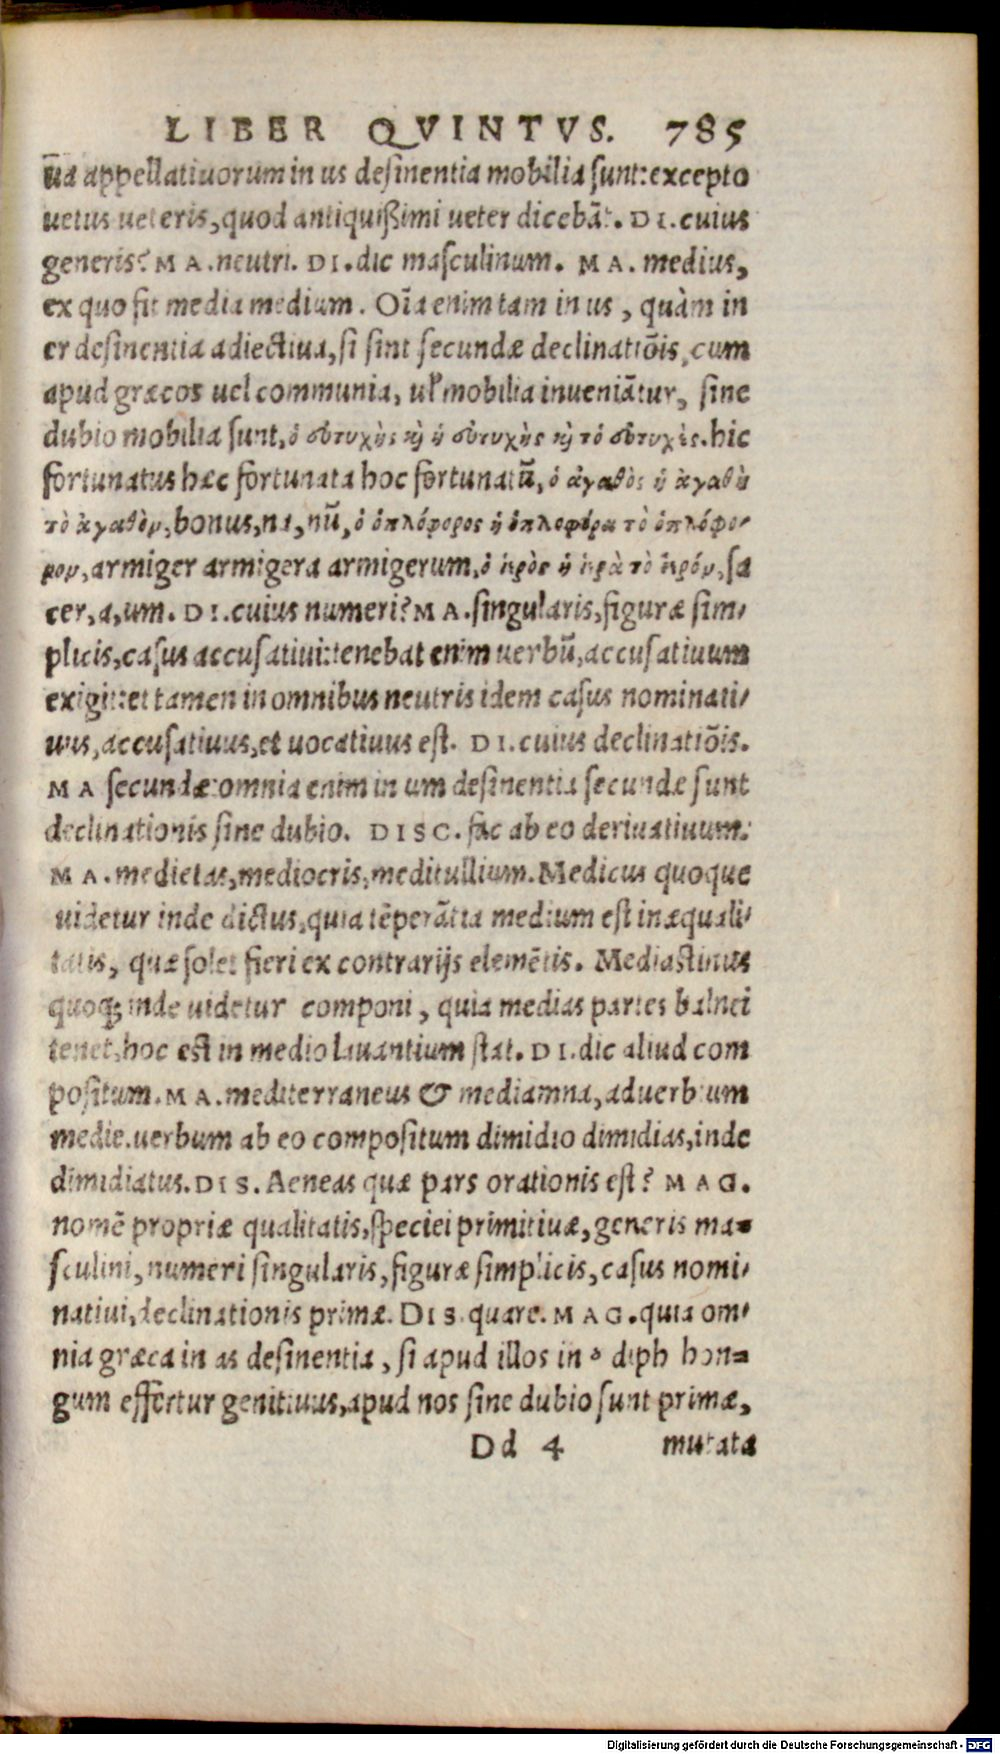 LIBER QVINTVS. 785
ūa appellatiuorum in us desinentia mobilia sunt: excepto
uetus ueteris, quod antiquißimi ueter dicebāt. DI. cuius
generis? MA. neutri. DI. dic masculinum. MA. medius,
ex quo fit media medium. Oīa enim tam in us, quàm in
er desinentia adiectiua, si sint secundæ declinatiõis, cum
apud græcos uel communia, uł mobilia inueniātur, sine
dubio mobilia sunt, ὁ εὐτυχὴς κὴ ἡ εὐτυχὴς κὴ τὸ εὐτυχὲς. hic
fortunatus hæc fortunata hoc fortunatū, ὁ ἀγαθὸς ἡ ἀγαθὴ
τὸ ἀγαθὸν, bonus, na, nū, ὁ ὁπλόφορος ἡ ὁπλοφόρα τὸ ὁπλόφο-
ρον, armiger armigera armigerum, ὁ ἱερὸς ἡ ἱερὰ τὸ ἱερόν, sa
cer, a, um. DI. cuius numeri? MA. singularis, figuræ sim-
plicis, casus accusatiui: tenebat enim uerbū, accusatiuum
exigit: et tamen in omnibus neutris idem casus nominati-
uus, accusatiuus, et uocatiuus est. DI. cuius declinatiõis.
MA secundæ: omnia enim in um desinentia secundæ sunt
declinationis sine dubio. DISC. fac ab eo deriuatiuum.
MA. medietas, mediocris, meditullium. Medicus quoque
uidetur inde dictus, quia tēperātia medium est inæquali-
tatis, quæ solet fieri ex contrarijs elemētis. Mediastinus
quoq; inde uidetur componi, quia medias partes balnei
tenet, hoc est in medio lauantium stat. DI. dic aliud com
positum. MA. mediterraneus & mediamna, aduerbium
medie. uerbum ab eo compositum dimidio dimidias, inde
dimidiatus. DIS. Aeneas quæ pars orationis est? MAG.
nomē propriæ qualitatis, speciei primitiuæ, generis ma-
sculini, numeri singularis, figuræ simplicis, casus nomi-
natiui, declinationis primæ. DIS. quare. MAG. quia om-
nia græca in as desinentia, si apud illos in diphthon-
gum effertur genitiuus, apud nos sine dubio sunt primæ,
Dd 4 mutata
Digitalisierung gefördert durch die Deutsche Forschungsgemeinschaft - DFG